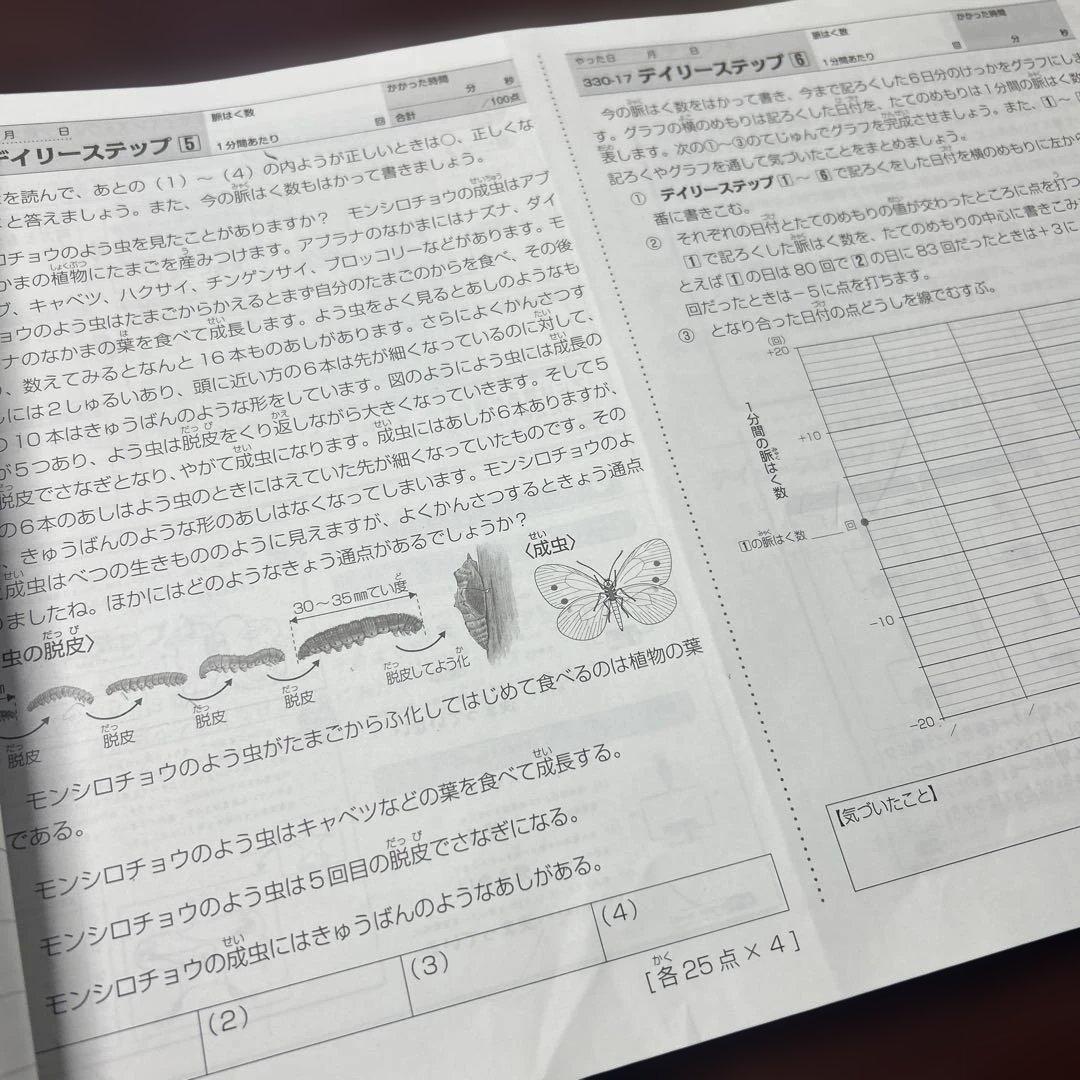 月 日
デイリーステップ 5
脈はく数
1分間あたり 回
かかった時間
分 秒
合計 /100点
を読んで、あとの（1）～（4）の内ようが正しいときは○、正しくな
と答えましょう。また、今の脈はく数もはかって書きましょう。
ロチョウのよう虫を見たことがありますか？ モンシロチョウの成虫はアブ
かまの植物にたまごを産みつけます。アブラナのなかまにはナズナ、ダイ
ブ、キャベツ、ハクサイ、チンゲンサイ、ブロッコリーなどがあります。モ
ョウのよう虫はたまごからかえるとまず自分のたまごのからを食べ、その後
ナのなかまの葉を食べて成長します。よう虫をよく見るとあしのようなも
、数えてみるとなんと16本ものあしがあります。さらによくかんさつす
しには2しゅるいあり、頭に近い方の6本は先が細くなっているのに対して、
の10本はきゅうばんのような形をしています。図のようによう虫には成長の
が5つあり、よう虫は脱皮をくり返しながら大きくなっていきます。そして5
脱皮でさなぎとなり、やがて成虫になります。成虫にはあしが6本ありますが、
の6本のあしはよう虫のときにはえていた先が細くなっていたものです。その
、きゅうばんのような形のあしはなくなってしまいます。モンシロチョウのよ
成虫はべつの生きもののように見えますが、よくかんさつするときょう通点
りましたね。ほかにはどのようなきょう通点があるでしょうか？
虫の脱皮〉
30～35mmてい度
〈成虫〉
脱皮
脱皮
脱皮
脱皮
脱皮してよう化
モンシロチョウのよう虫がたまごからふ化してはじめて食べるのは植物の葉
である。
モンシロチョウのよう虫はキャベツなどの葉を食べて成長する。
モンシロチョウのよう虫は5回目の脱皮でさなぎになる。
モンシロチョウの成虫にはきゅうばんのようなあしがある。
（2）
（3）
（4）
[各25点×4]
やった日 月 日
330-17 デイリーステップ 6
脈はく数
1分間あたり 回
かかった時間
分 秒
今の脈はく数をはかって書き、今まで記ろくした6日分のけっかをグラフにしま
す。グラフの横のめもりは記ろくした日付を、たてのめもりは1分間の脈はく数
表します。次の①～③のてじゅんでグラフを完成させましょう。また、1～
記ろくやグラフを通して気づいたことをまとめましょう。
① デイリーステップ1～6で記ろくをした日付を横のめもりに左から
番に書きこむ。
② それぞれの日付とたてのめもりの値が交わったところに点を打つ
1で記ろくした脈はく数を、たてのめもりの中心に書きこみ
とえば1の日は80回で2の日に83回だったときは+3に
回だったときは－5に点を打ちます。
③ となり合った日付の点どうしを線でむすぶ。
（回）
+20
+10
1分間の脈はく数
1の脈はく数 回
−10
−20
【気づいたこと】